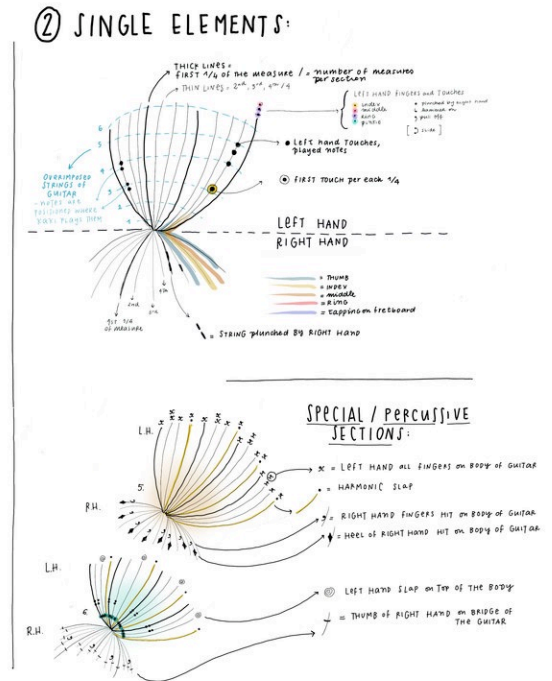 ② SINGLE ELEMENTS:
THICK LINES =
FIRST 1/4 OF THE MEASURE / = number of measures
per section
THIN LINES = 2nd, 3rd, 4th /4
LEFT HAND FINGERS and Touches
index
middle
RING
pinkie
plunched by right hand
hammer on
pull off
[ slide ]
6
5
4
3
2
1
Left Hand Touches,
played notes
OVERIMPOSED
STRINGS OF
GUITAR
FIRST TOUCH per each 1/4
- notes are
positioned where
LEFT HAND
RIGHT HAND
= THUMB
= INDEX
= middle
= RING
= tapping on fretboard
1st 1/4
of measure
2nd
3rd
4th
= STRING plunched by RIGHT HAND
SPECIAL / PERCUSSIVE
SECTIONS:
L.H.
5.
R.H.
x = LEFT HAND ALL FINGERS ON BODY OF GUITAR
= HARMONIC SLAP
= RIGHT HAND FINGERS HIT ON BODY OF GUITAR
= HEEL OF RIGHT HAND HIT ON BODY OF GUITAR
L.H.
6.
R.H.
@ LEFT HAND SLAP ON TOP OF THE BODY
= THUMB OF RIGHT HAND ON BRIDGE OF
THE GUITAR